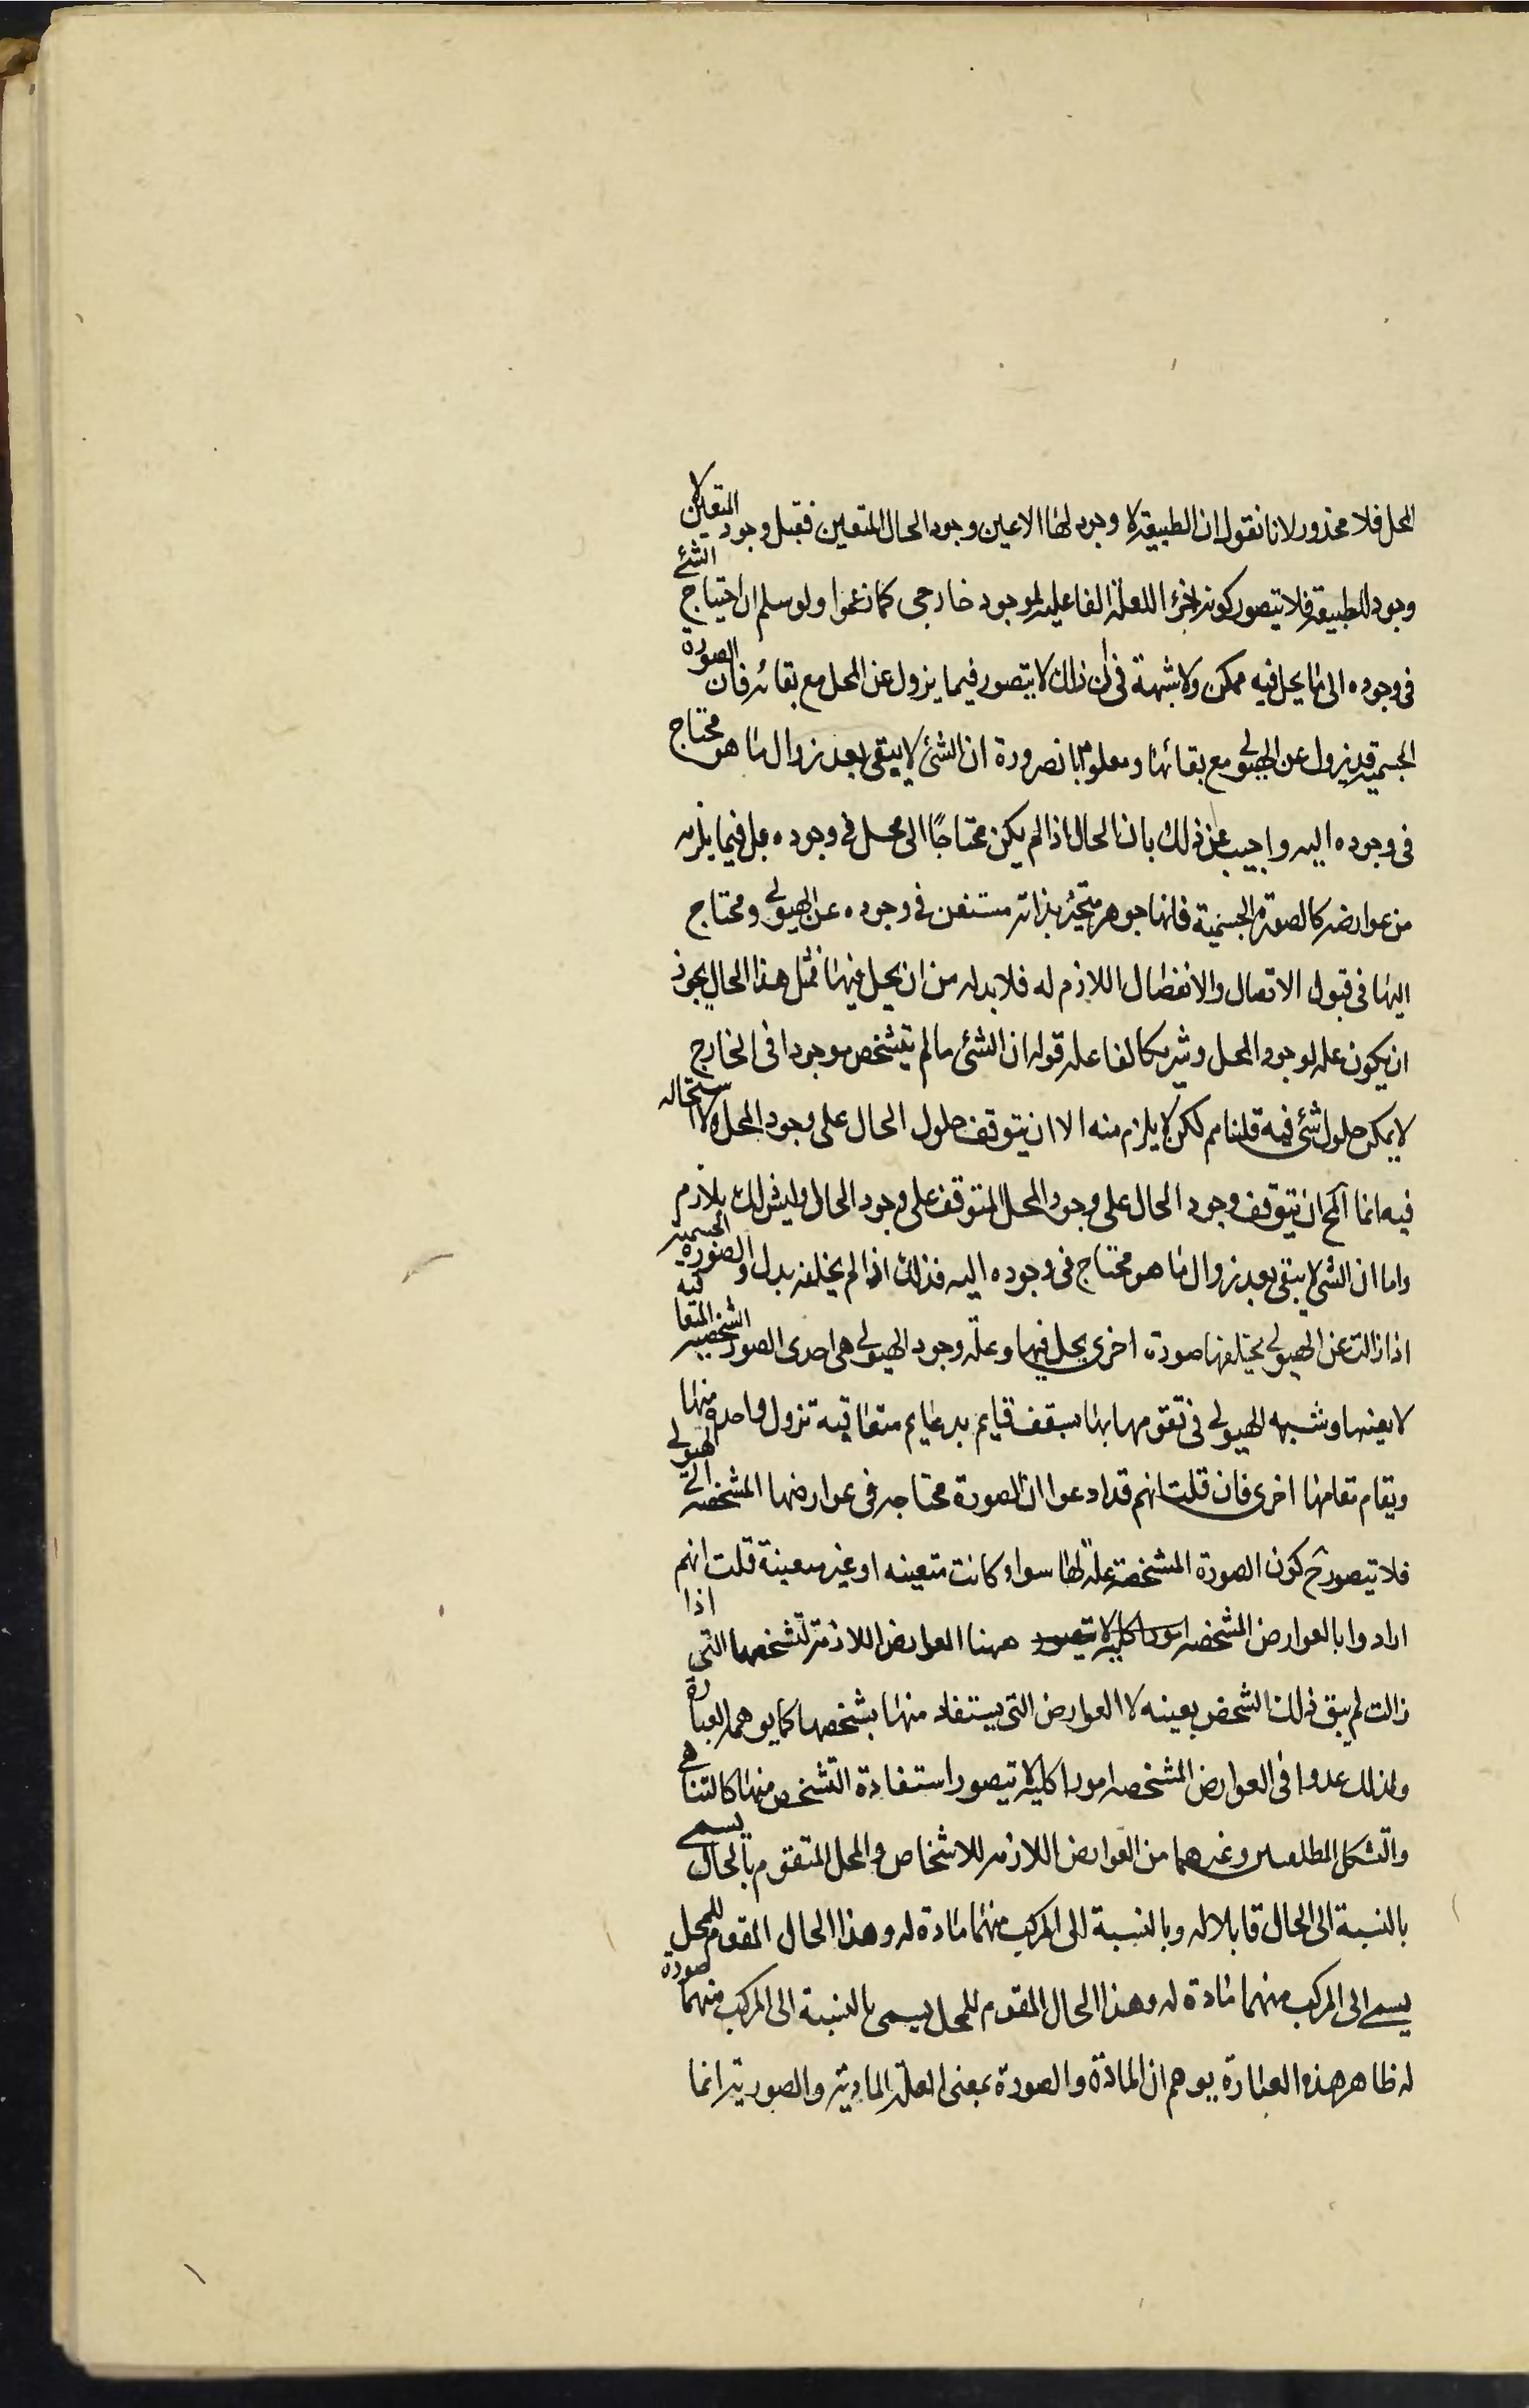 المحل فلا محذور لانا نقول ان الطبيعة لا وجود لها الا عين وجود الحال المتعين فقبل وجود المتعين لا
وجود للطبيعة فلا يتصور كونه جزء للعلة الفاعلية لموجود خارجى كما زعموا ولو سلم ان احتياج الشئ
فى وجوده الى ما يحل فيه ممكن ولا شبهة فى ان ذلك لا يتصور فيما يزول عن المحل مع بقائه فان الصورة
الجسمية قد يزول عن الهيولى مع بقائها ومعلوم بالضرورة ان الشئ لا يبقى بعد زوال ما هو محتاج
فى وجوده اليه واجيب عن ذلك بان الحال اذا لم يكن محتاجًا الى محل فى وجوده بل فيما يلزمه
من عوارضه كالصورة الجسمية فانها جوهر متحيز بذاته مستغن فى وجوده عن الهيولى ومحتاج
اليها فى قبول الاتصال والانفصال اللازم له فلا بد له من ان يحل فيها فمثل هذا الحال يجوز
ان يكون علة لوجود المحل وشريكا لفاعله قوله ان الشئ ما لم يتشخص موجودا فى الخارج
لا يمكن حلول شئ فيه قلنا مم لكن لا يلزم منه الا ان يتوقف حلول الحال على وجود المحل ولا استحاله
فيه انما المح ان يتوقف وجود الحال على وجود المحل المتوقف على وجود الحال وليس ذلك بلازم
واما ان الشئ لا يبقى بعد زوال ما هو محتاج فى وجوده اليه فذلك اذا لم يخلفه بدل والصورة الجسمية
اذا زالت عن الهيولى يخلفها صورة اخرى يحل فيها وعلة وجود الهيولى هى احدى الصور الشخصية المتعاقبة
لا بعينها وشبه الهيولى فى تقومها بها بسقف قايم بدعايم متعاقبة تزول واحدة منها
ويقام مقامها اخرى فان قلت انهم قد ادعوا ان الصورة محتاجه فى عوارضها المشخصه الى الهيولى
فلا يتصور ح كون الصورة المشخصة علة لها سواء كانت متعينه او غير معينة قلت انهم
ارادوا بالعوارض المشخصه امورا كلية لا تيصور ههنا العوارض اللازمة لتشخصها التى اذا
زالت لم يبق ذلك الشخص بعينه لا العوارض التى يستفاد منها بشخصها كما يوهمه العبارة
ولذلك عدوا فى العوارض المشخصه امورا كلية لا تيصور استفادة التشخص منها كالتناهى
والتشكل المطلقين وغيرهما من العوارض اللازمه للاشخاص والمحل المتقوم بالحال يسمى
بالنسبة الى الحال قابلا له وبالنسبة الى المركب منهما مادة له وهذا الحال المقوم للمحل
يسمى الى المركب منهما مادة له وهذا الحال المقوم للمحل يسمى بالنسبة الى المركب منهما صورة
له ظاهر هذه العبارة يوهم ان المادة والصورة بمعنى العلة المادية والصورية انما